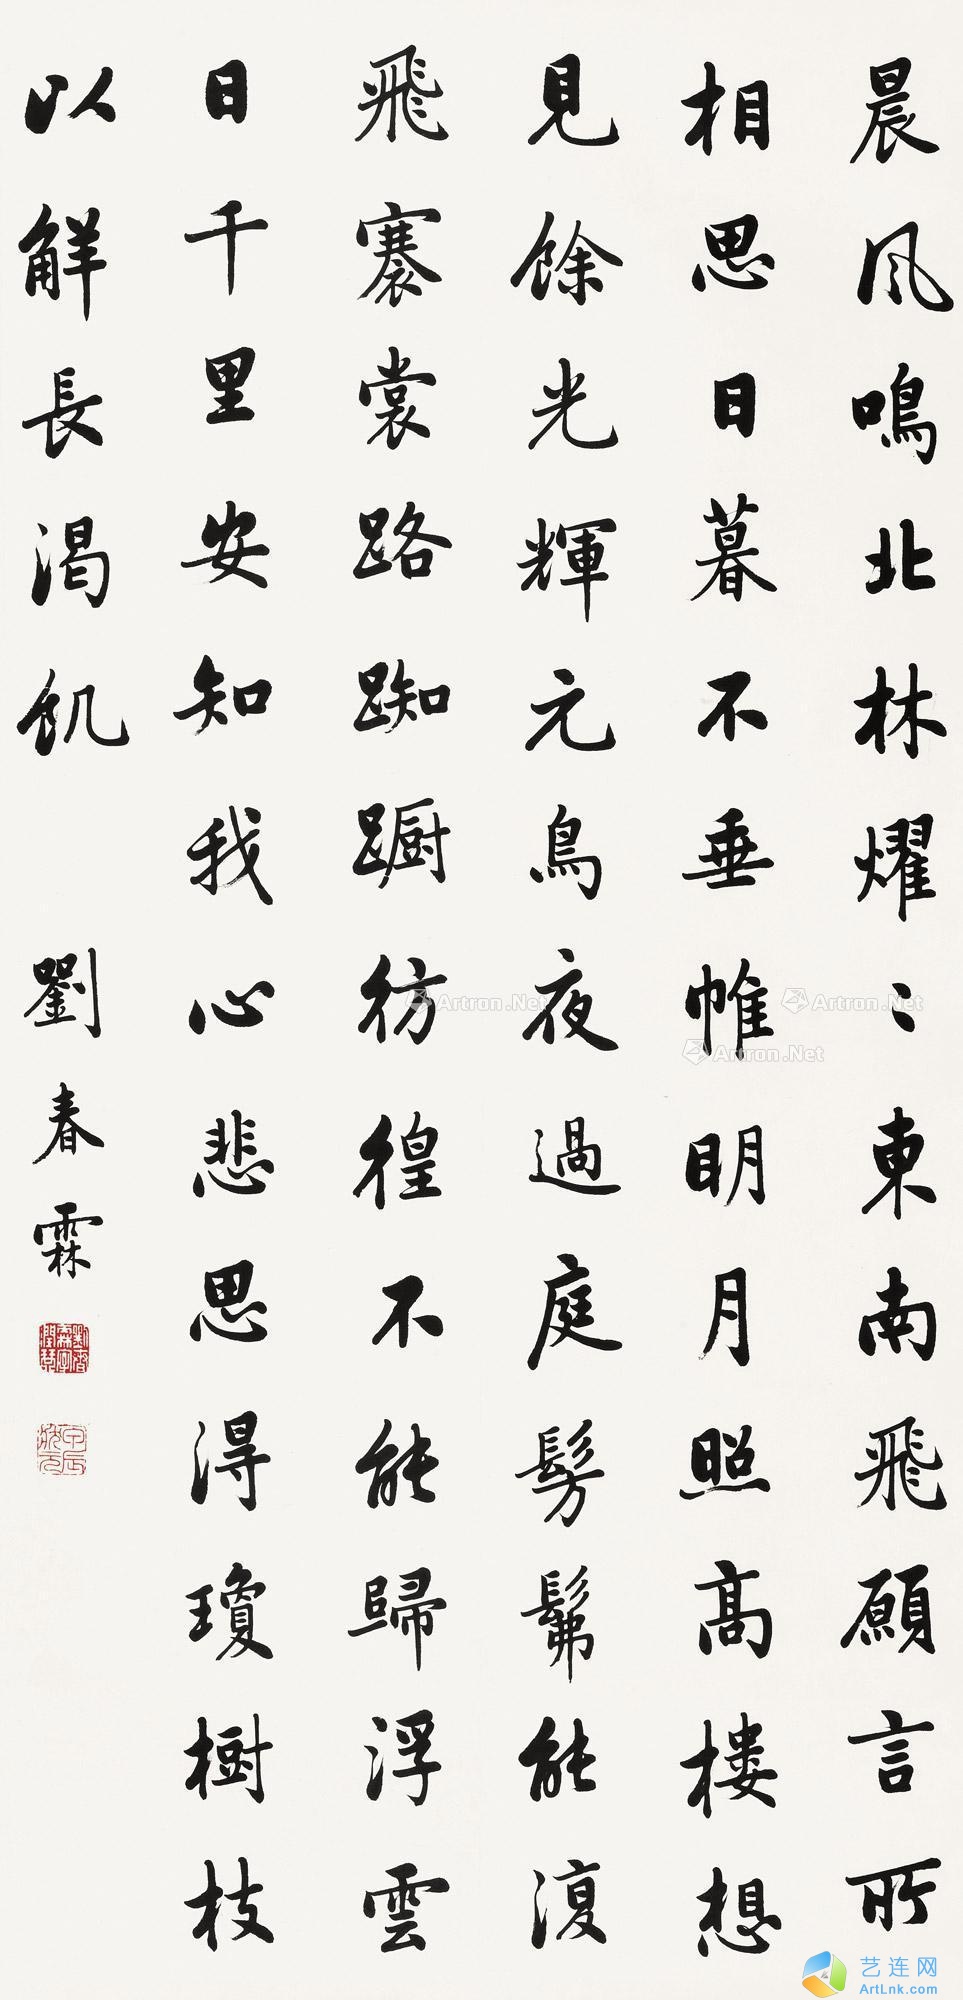 晨風鳴北林耀〻東南飛願言所
相思日暮不垂帷明月照高樓想
見餘光輝元鳥夜過庭髣髴能復
飛褰裳路踟蹰彷徨不能歸浮雲
日千里安知我心悲思得瓊樹枝
以解長渴飢
劉春霖
Artron.Net
Artron.Net
Artron.Net
艺连网
ArtLnk.com